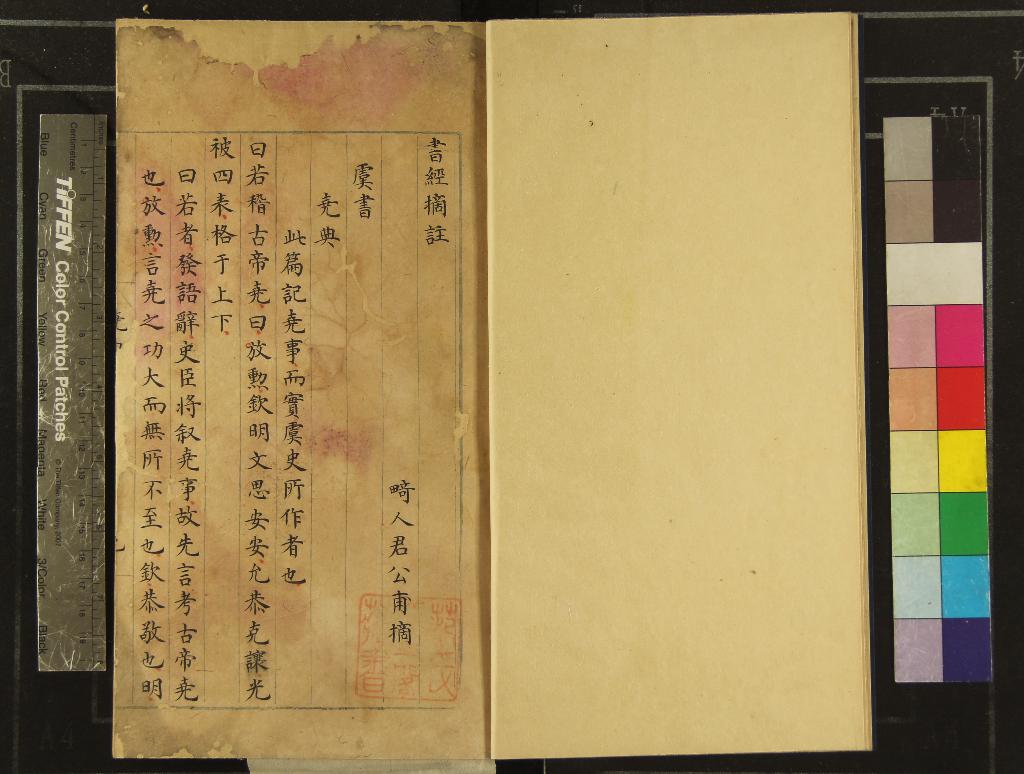 書經摘註
畸人君公甫摘
虞書
堯典
此篇記堯事而實虞史所作者也
曰若稽古帝堯曰放勲欽明文思安安允恭克讓光
被四表格于上下
曰若者發語辭史臣将叙堯事故先言考古帝堯
也放勲言堯之功大而無所不至也欽恭敬也明
Centimetres
Inches
TIFFEN Color Control Patches
© The Tiffen Company, 2007
Blue
Cyan
Green
Yellow
Red
Magenta
White
3/Color
Black